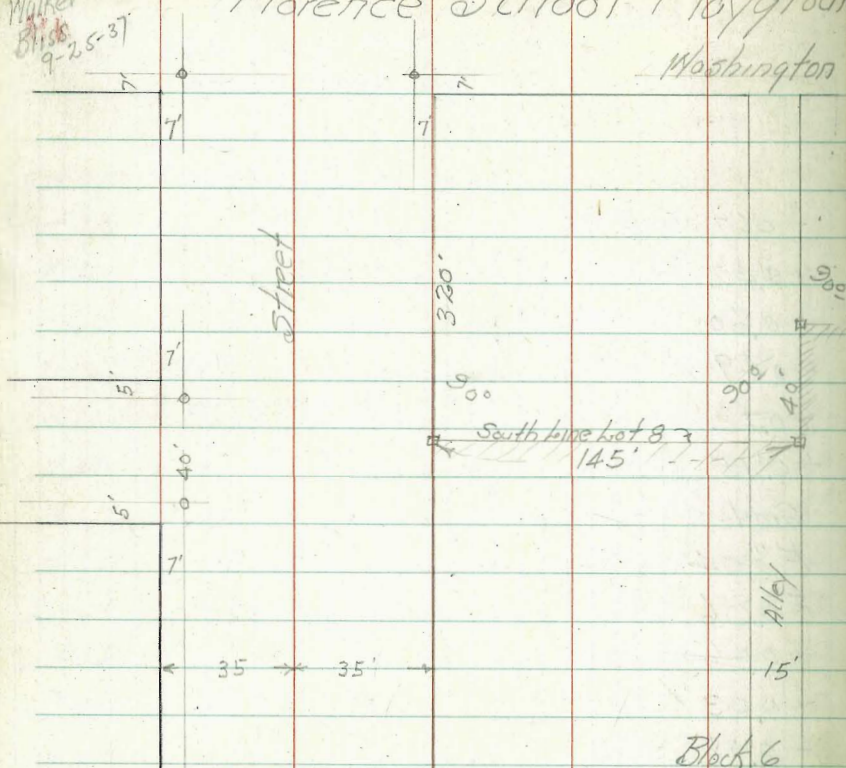 Walker
Bliss
9-25-37
Florence School Playgroun
Washington
7'
7'
7'
7'
Street
320'
90°
7'
5'
90°
40'
South Line Lot 8
145'
40'
5'
7'
Alley
35
35'
15'
Block 6